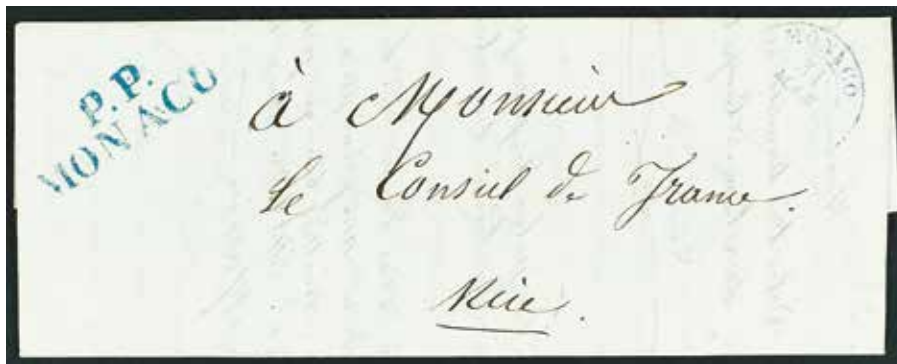 P.P.
MONACO
MONACO
21
à Monsieur
Le Consul de France.
Nice.